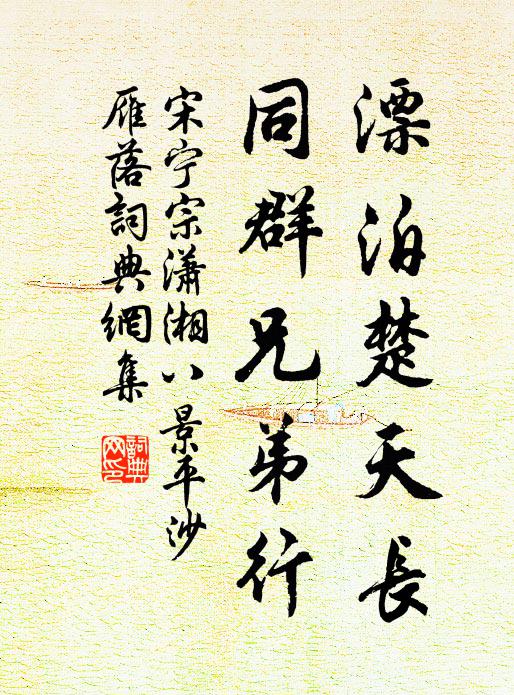 漂泊楚天長
同群兄弟行
宋宁宗瀟湘八景平沙
雁落詞典網集
詞典网印